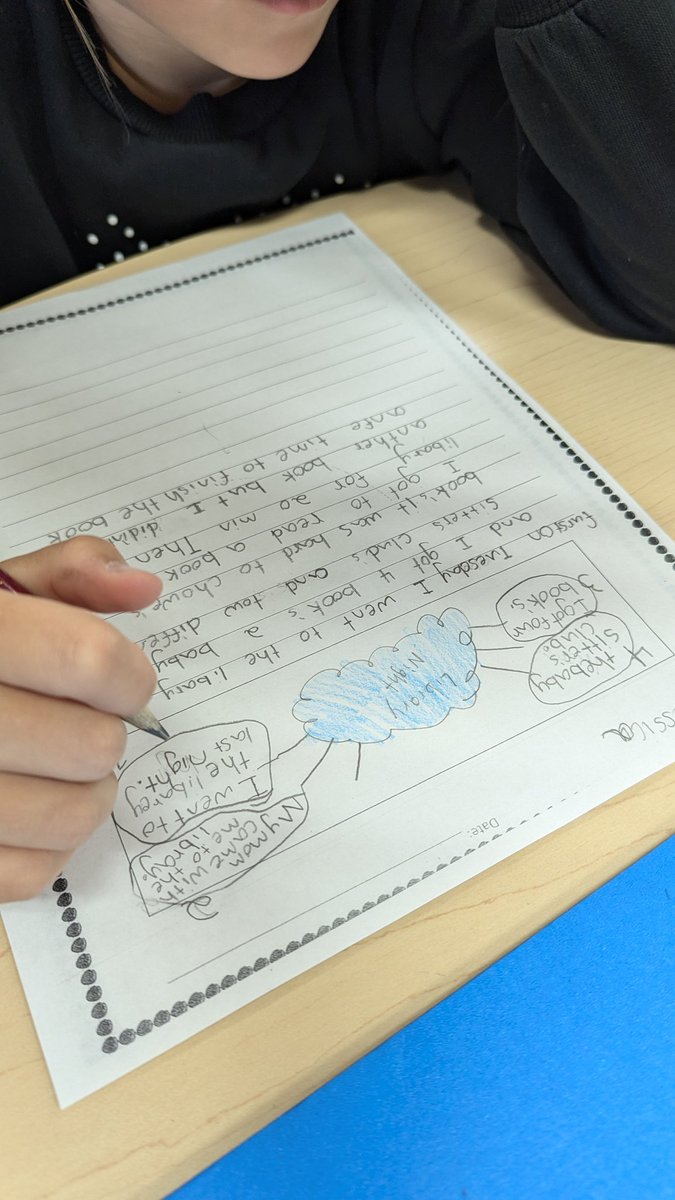 Date:
essica
2
My mom
came with
me to the
libray.
I went to
the librarey
last night.
Library
Night
4
the baby
sitter's
clube
3
I got four
books.
furst on Tuesday I went to the libary
and I got 4 book's a baby
sitters club's and tow differ
book's It was hard to
I got to read a book
libary for 20 min Then
anther book but I didin
anfe time to finish the book